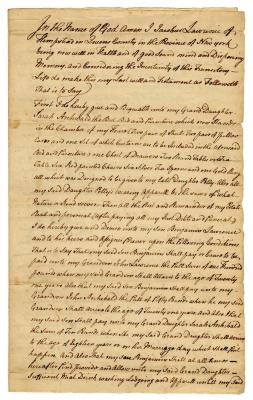 In the Name of God Amen I Jacobus Lawrence of
Hempstead in Queens County in the Province of New york
being now well in Health and of good sound mind and Disposing
Memory, and Considering the Uncertainty of this Transitory
Life do make this my Last will and Testament as Followeth
That is to Say
First I do hereby give and Bequeath unto my Grand Daughter
Sarah Archibald the Best Bed and Furniture which now Stands
in the Chamber of my House Two pair of Sheets Two pair of pillow
cases and one Set of white Curtains to be included in the aforesaid
Bed and Furniture, one Chest of Drawers One Round Table
Table Six Red painted Chairs Six Silver Tea Spoons and one Gold Ring
all which was Designed to be given to my late Daughter Betty
my said Daughter Bettys wearing apparell be the same of what
Nature or kind soever. Then all the Rest and Remainder of my Estate
Real and personal (after paying all my Just Debts and Funeral)
I do hereby give and devise unto my Son Benjamin Lawrence
and to his heirs and Assigns Forever upon the following Conditions
That is to Say That my said Son Benjamin Shall pay or Cause to be
paid unto my Grandson John Lawrence the Sum of one Hundred
pounds when my said Grandson Shall Attain to the age of Twenty
one years Also that my Said Son Benjamin Shall pay unto my
Grandson John Archibald the Sum of Fifty Pounds when my said
Grandson Shall Arrive to the age of Twenty one years and Also that
my Said Son Shall pay unto my Grand Daughter Sarah Archibald
the Sum of Ten Pounds when My said Grand Daughter Shall arrive
to the age of Eighteen years or on her Marriage day which Shall first
happen. And Also that my Son Benjamin Shall at all times
hereafter Find provide and Allow unto my Said Grand Daughter
Sufficient Meat Drink washing Lodging and Apparel until my said